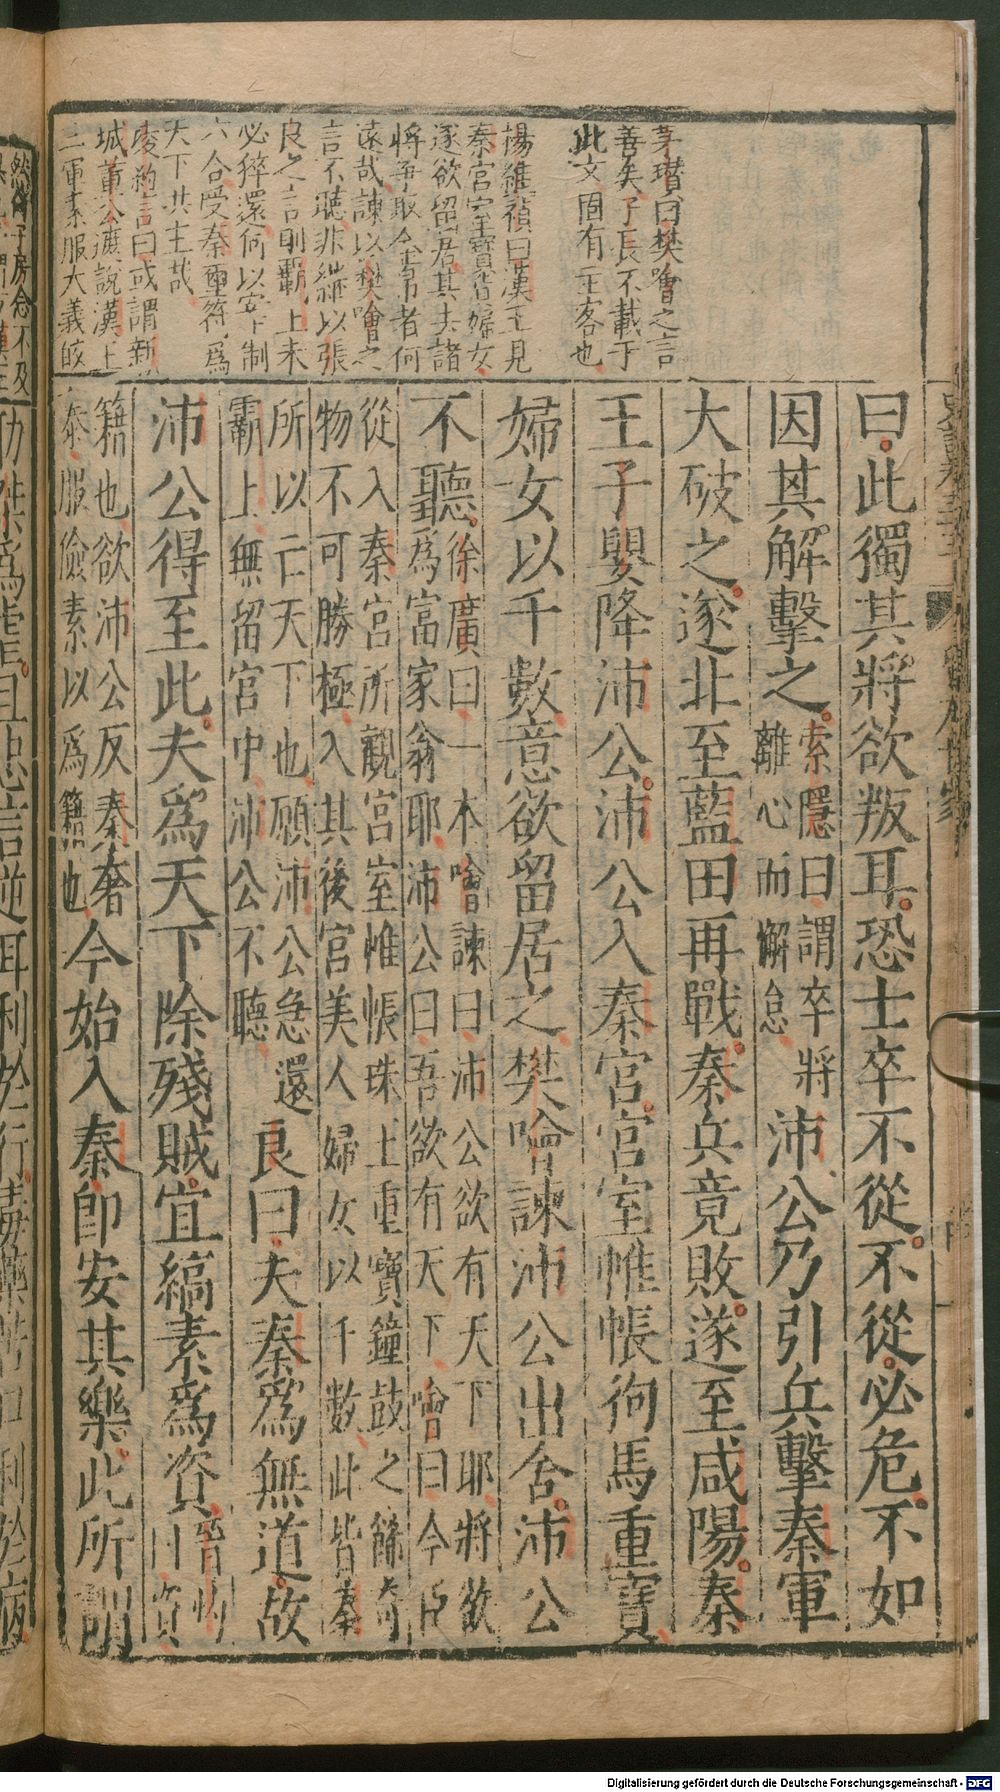 茅瓚曰樊噲之言
善矣子長不載于
此文固有主客也
楊維禎曰漢王見
秦宮室寶貨婦女
遂欲留居其去諸
將爭取金帛者何
遠哉諫以樊噲之
言不聽非繼以張
良之言則霸上未
必猝還何以安下制
六合受秦璽符爲
天下共主哉
凌約言曰或謂新
城董公遮說漢王
三軍素服大義皎
曰此獨其將欲叛耳恐士卒不從不從必危不如
因其解擊之索隱曰謂卒將離心而懈怠沛公乃引兵擊秦軍
大破之遂北至藍田再戰秦兵竟敗遂至咸陽秦
王子嬰降沛公沛公入秦宮宮室帷帳狗馬重寶
婦女以千數意欲留居之樊噲諫沛公出舍沛公
不聽徐廣曰一本噲諫曰沛公欲有天下耶將欲
爲富家翁耶沛公曰吾欲有天下噲曰今臣
從入秦宮所觀宮室帷帳珠玉重寶鐘鼓之飾奇
物不可勝極入其後宮美人婦女以千數此皆秦
所以亡天下也願沛公急還
霸上無留宮中沛公不聽良曰夫秦爲無道故
沛公得至此夫爲天下除殘賊宜縞素爲資晉灼曰資
籍也欲沛公反秦奢
泰服儉素以爲籍也今始入秦卽安其樂此所謂
然
功桀爲虐且忠言逆耳利於行毒藥苦口利於病
Digitalisierung gefördert durch die Deutsche Forschungsgemeinschaft - DFG